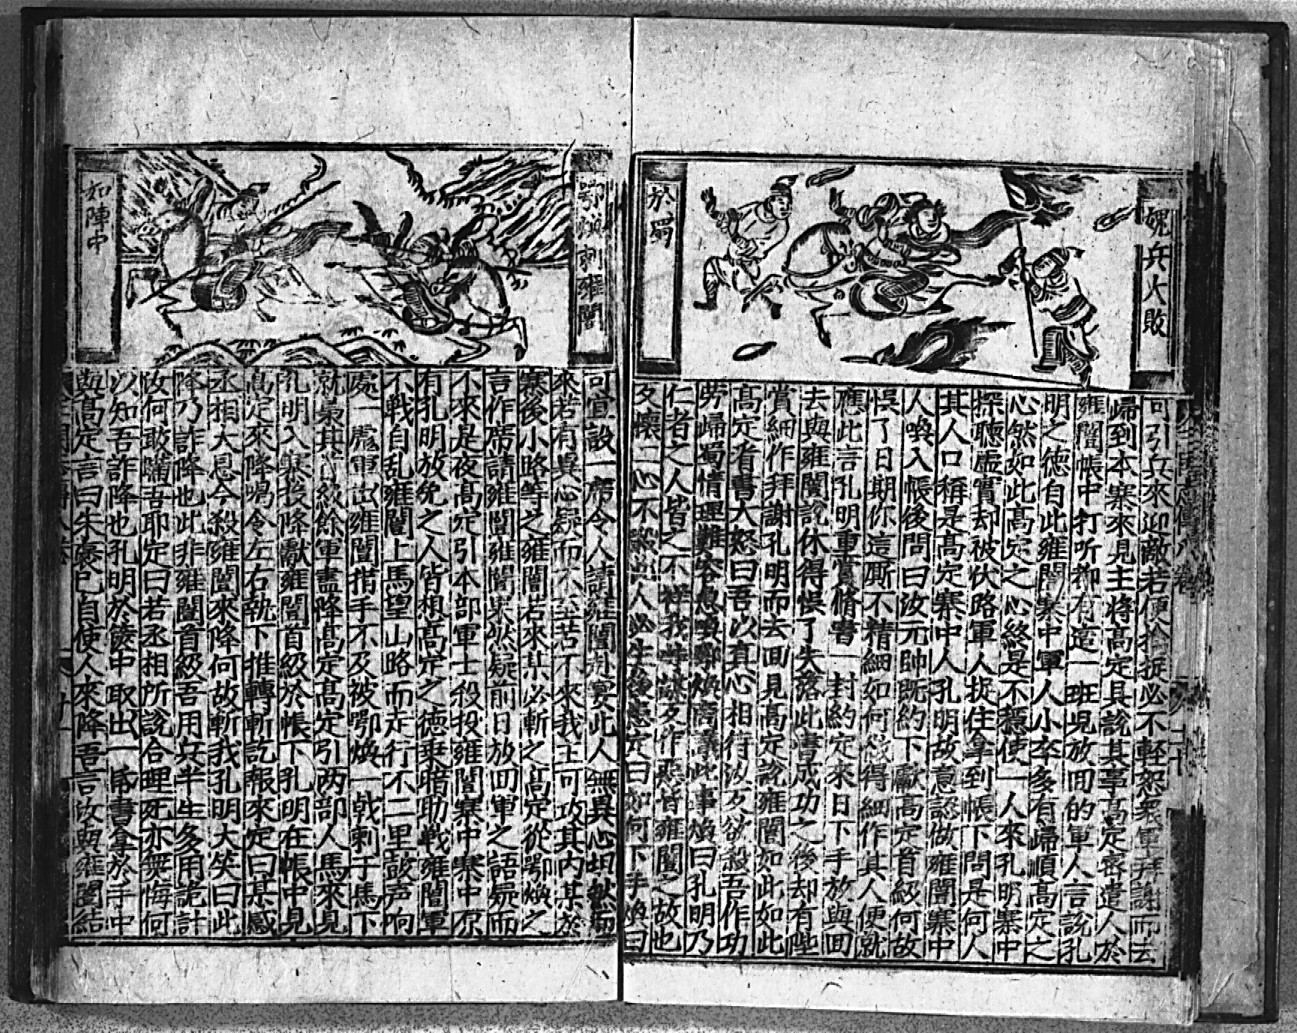 魏兵大敗
於蜀
可引兵來迎敵若便擒捉必不輕恕衆軍拜謝而去
歸到本寨來見主將高定具說其事高定密遣人於
雍闓帳中打听都有造一班兒放回的軍人言說孔
明之德自此雍闓寨中軍人小卒多有歸順高定之
心然如此高定之心終是不穩使一人來孔明寨中
探聽虛實却被伏路軍人捉住拿到帳下問是何人
其人口稱是高定寨中人孔明故意認做雍闓寨中
人喚入帳後問曰汝元帥既約下獻高定首級何故
悮了日期你這厮不精細如何做得細作其人便就
應此言孔明重賞脩書一封約定來日下手放與回
去與雍闓說休得悮了失落此書成功之後却有陞
賞細作拜謝孔明而去回見高定說雍闓如此如此
高定看書大怒曰吾以真心相待汝反欲殺吾作功
勞歸蜀情理難容急喚鄂煥商議此事煥曰孔明乃
仁者之人皆之不祥我等謀反作惡皆雍闓之故也
鄂煥刺雍闓
如陣中
可宜設一席令人請雍闓赴宴此人無異心坦然而
來若有異心疑而不至苦不來我主可攻其内某於
寨後小路等之雍闓若來某必斬之高定從鄂煥之
言作席請雍闓雍闓果然疑前日放回軍之語疑而
不來是夜高定引本部軍士殺投雍闓寨中寨中原
有孔明放免之人皆想高定之德乘暗助戰雍闓軍
不戰自乱雍闓上馬望山路而走行不二里鼓声响
處一彪軍出雍闓措手不及被鄂煥一戟刺于馬下
就梟其首級餘軍盡降高定高定引两部人馬來見
孔明入寨投降獻雍闓首級於帳下孔明在帳中見
高定來降喝令左右執下推轉斬訖報來定曰某感
丞相大恩今殺雍闓來降何故斬我孔明大笑曰此
降乃詐降也此非雍闓首級吾用兵半生多用詭計
汝何敢瞞吾耶定曰若丞相所說合理死亦無悔何
以知吾詐降也孔明於篋中取出一昏書拿於手中
與高定言曰朱褒已自使人來降吾言汝與雍闓結